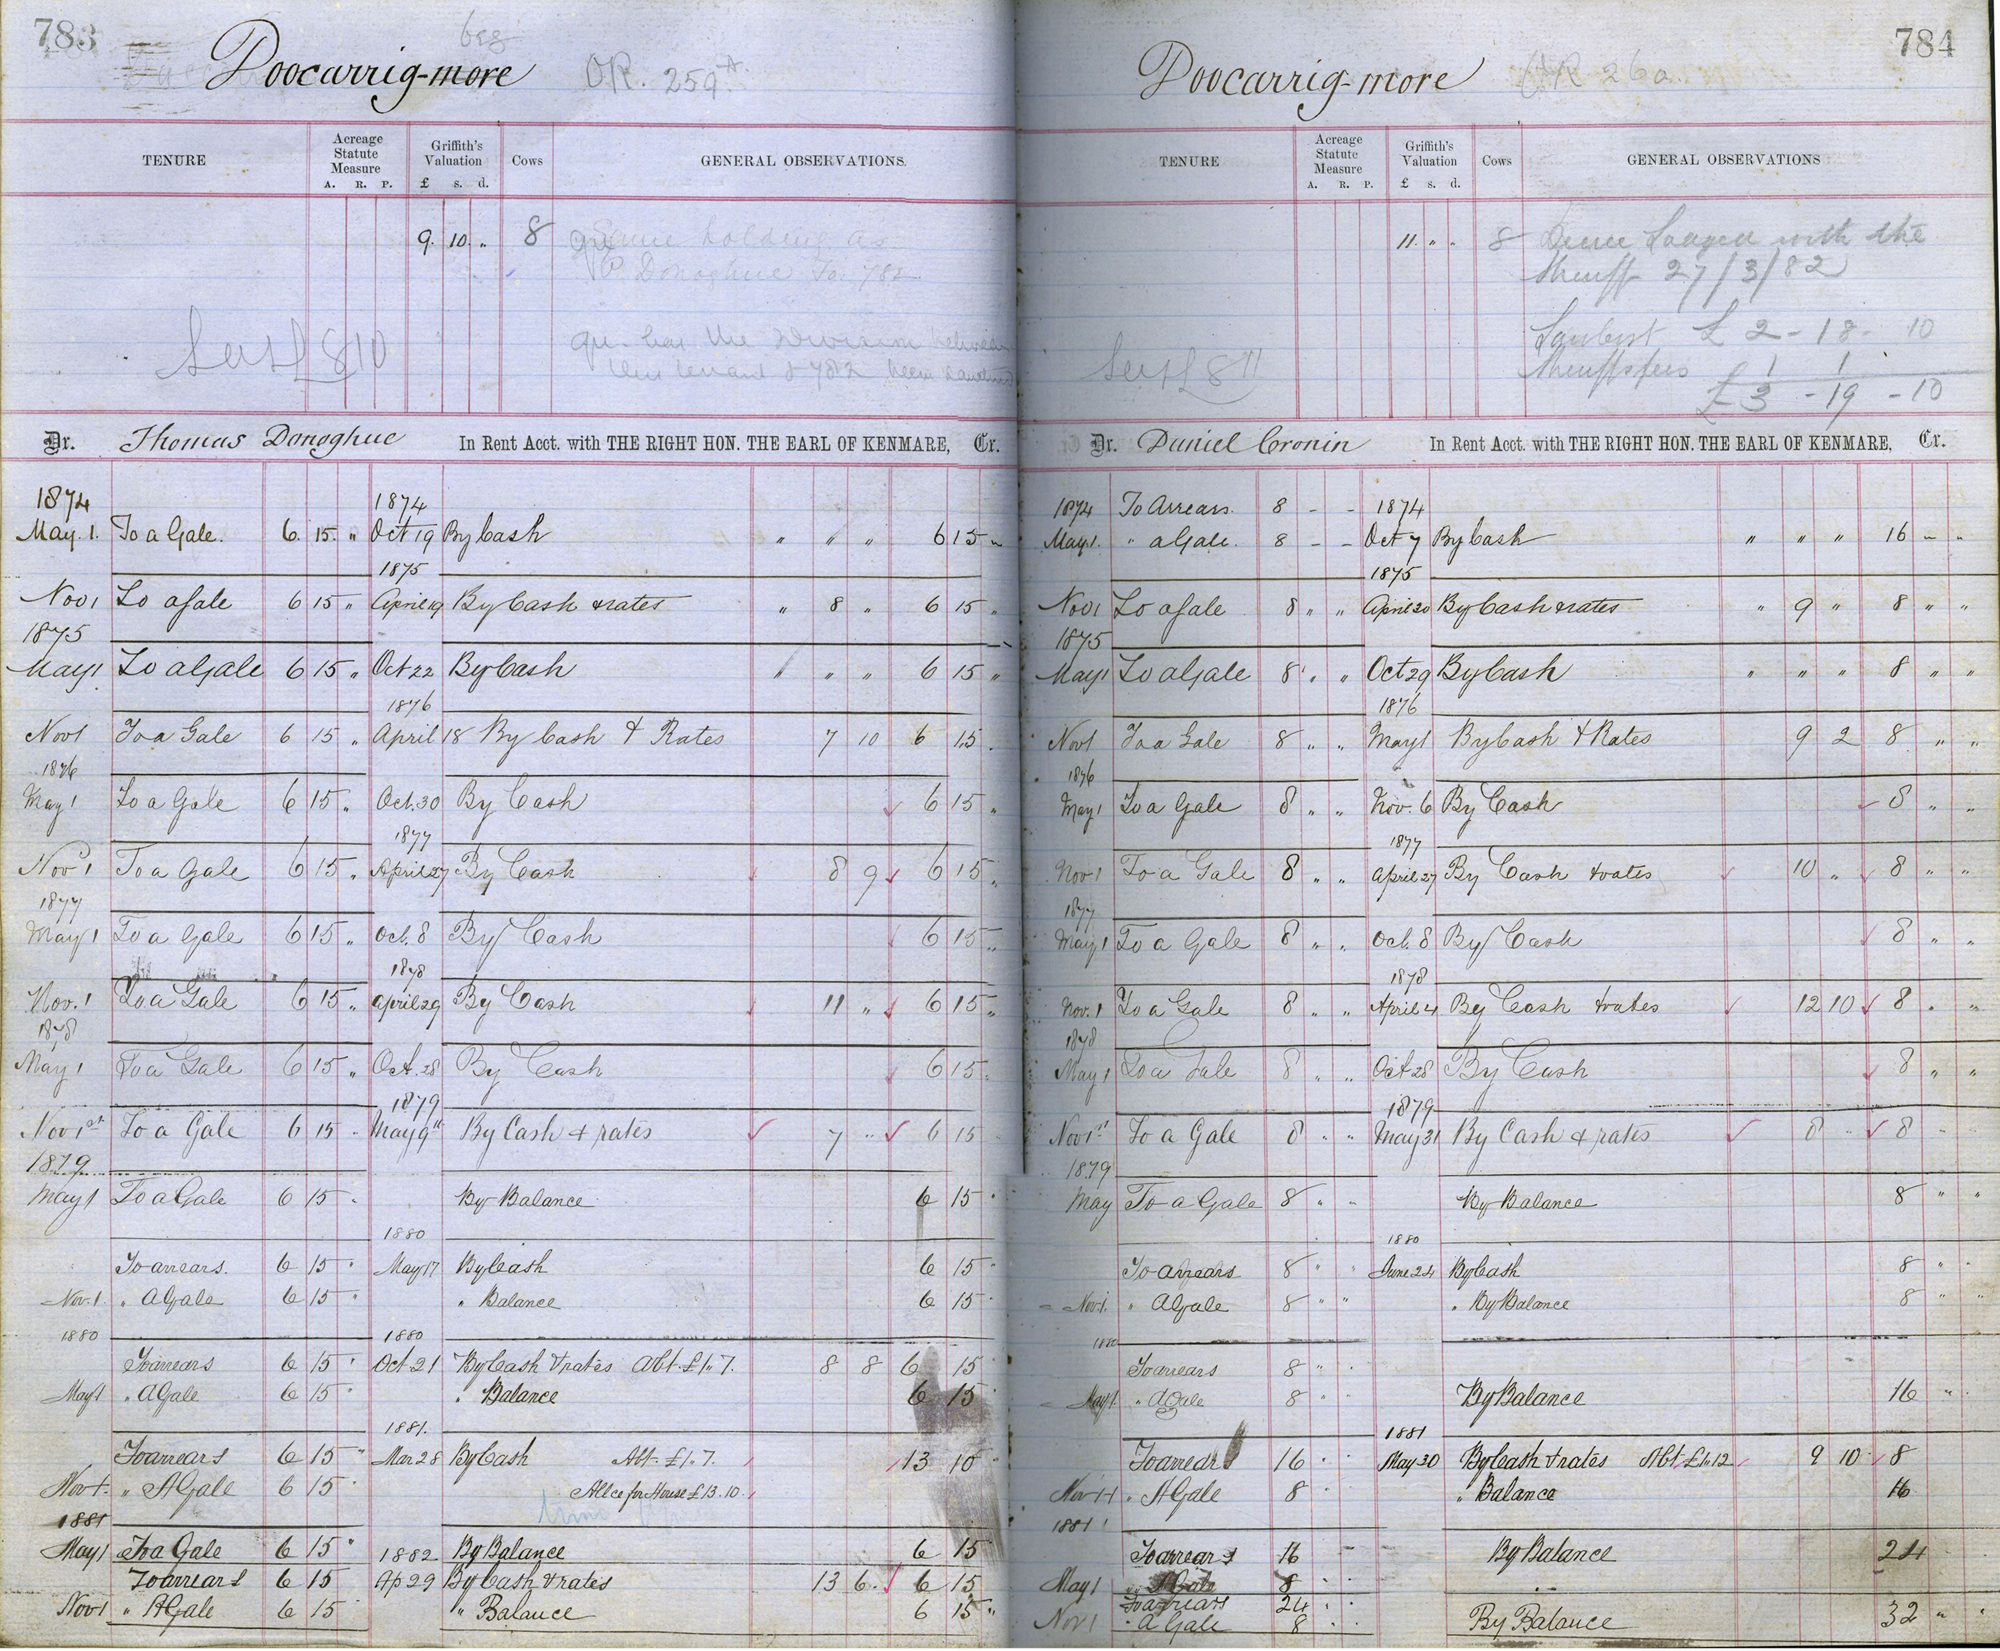 783
Doocarrig-more
OR. 259
TENURE Acreage Statute Measure A. R. P. Griffith's Valuation £ s. d. Cows GENERAL OBSERVATIONS.
9. 10. „ 8 Same holding as
P Donoghue Fo 782
£8 10
Qu. has the Division between
this tenant & 782 been
Dr. Thomas Donoghue In Rent Acct. with THE RIGHT HON. THE EARL OF KENMARE, Cr.
1874 1874
May. 1. To a Gale. 6. 15. „ Oct 19 By Cash „ „ „ 6 15 „
1875
Nov 1 To a Gale 6 15 „ April 19 By Cash & rates „ 8 „ 6 15 „
1875
May 1 To a Gale 6 15 „ Oct 22 By Cash „ „ „ 6 15 „
1876
Nov 1 To a Gale 6 15 „ April 18 By Cash & Rates 7 10 6 15 .
1876
May 1 To a Gale 6 15 „ Oct. 30 By Cash 6 15 „
1877
Nov 1 To a Gale 6 15 „ April 27 By Cash 8 9 6 15 „
1877
May 1 To a Gale 6 15 „ Oct. 8 By Cash 6 15 „
1878
Nov. 1 To a Gale 6 15 „ April 29 By Cash 11 „ 6 15 „
1878
May 1 To a Gale 6 15 „ Oct. 28 By Cash 6 15 .
1879
Nov 1st To a Gale 6 15 . May 9th By Cash & rates 7 „ 6 15
1879
May 1 To a Gale 6 15 . By Balance 6 15 .
1880
To arrears. 6 15 . May 17 By Cash 6 15 .
Nov. 1. „ A Gale 6 15 . „ Balance 6 15 .
1880 1880
To arrears 6 15 . Oct 21 By Cash & rates Abt £1. 7. 8 8 6 15 .
May 1 „ A Gale 6 15 . „ Balance 6 15 .
1881.
To arrears 6 15 „ Mar 28 By Cash Abt. £1. 7. 13 10
Nov 1. „ A Gale 6 15 . Allce for House £13. 10.
1881
May 1 To a Gale 6 15 . 1882 By Balance 6 15
To arrears 6 15 Ap 29 By Cash & rates 13 6. 6 15
Nov 1 „ A Gale 6 15 „ Balance 6 15 „
784
Doocarrig-more
OR 260
TENURE Acreage Statute Measure A. R. P. Griffith's Valuation £ s. d. Cows GENERAL OBSERVATIONS
11. „ „ 8 Decree Lodged with the
Sheriff 27/3/82
£ 2 - 18 - 10
£8 11
Sheriffs fees 1 1
£3 - 19 - 10
Dr. Daniel Cronin In Rent Acct. with THE RIGHT HON. THE EARL OF KENMARE, Cr.
1874 To Arrears. 8 - - 1874
May 1. „ a Gale. 8 - - Oct 7 By Cash „ „ „ 16 „ „
1875
Nov 1 To a Gale 8 „ „ April 20 By Cash & rates „ 9 „ 8 „ „
1875
May 1 To a Gale 8 „ „ Oct 29 By Cash „ „ „ 8 „ „
1876
Nov 1 To a Gale 8 „ „ May 1 By Cash & Rates 9 2 8 „ „
1876
May 1 To a Gale 8 „ „ Nov. 6 By Cash 8 „ „
1877
Nov 1 To a Gale 8 „ „ April 27 By Cash & rates 10 „ 8 „ „
1877
May 1 To a Gale 8 „ „ Oct. 8 By Cash 8 „ „
1878
Nov. 1 To a Gale 8 „ „ April 4 By Cash & rates 12 10 8 . „
1878
May 1 To a Gale 8 „ „ Oct 28 By Cash 8 „ „
1879
Nov 1st To a Gale 8 „ „ May 31 By Cash & rates 8 „ 8 „
1879
May To a Gale 8 „ „ By Balance 8 „ „
1880
To arrears 8 „ „ June 24 By Cash 8 „ .
Nov. 1. „ A Gale 8 „ „ „ By Balance 8 „ „
1880
To arrears 8 „ „
May 1 „ A Gale 8 „ „ By Balance 16 „ .
1881
To arrears 16 . . May 30 By Cash & rates Abt £1. 12 9 10 8
Nov 1 „ A Gale 8 . . „ Balance 16
1881
To arrears 16 . . By Balance 24
May 1 A Gale 8 . .
To arrears 24 . .
Nov 1 „ A Gale 8 . . By Balance 32 „ .